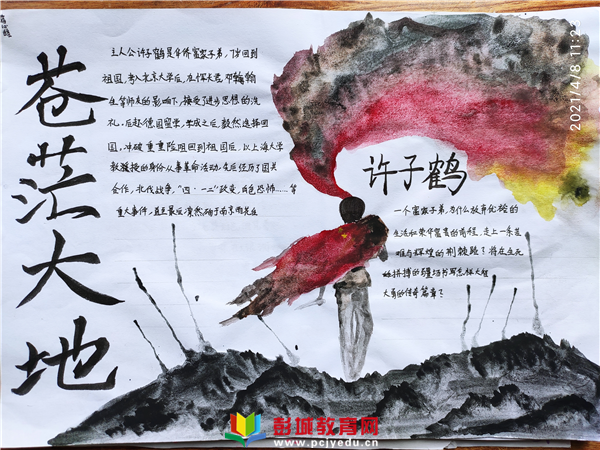 苍茫大地
主人公许子鹤是华侨富家子弟,
祖国,考入北京大学后,在
生等师友的影响下,接受了进步思想的洗
礼,后赴德国留学,学成之后,毅然选择回
国,冲破重重险阻回到祖国后,以上海大学
教授的身份从事革命活动,先后经历了国共
合作,北伐战争,“四·一二”政变,白色恐怖……等
重大事件,直至最后凛然牺牲于南京雨花台
许子鹤
一个富家子弟,为什么放弃优裕的
生活和荣华富贵的前程,走上一条苦
难与辉煌的荆棘路?将在生死
拼搏的疆场书写怎样大智
大勇的传奇篇章?
2021/4/8 11:23
彭城教育网
www.pcjyedu.cn